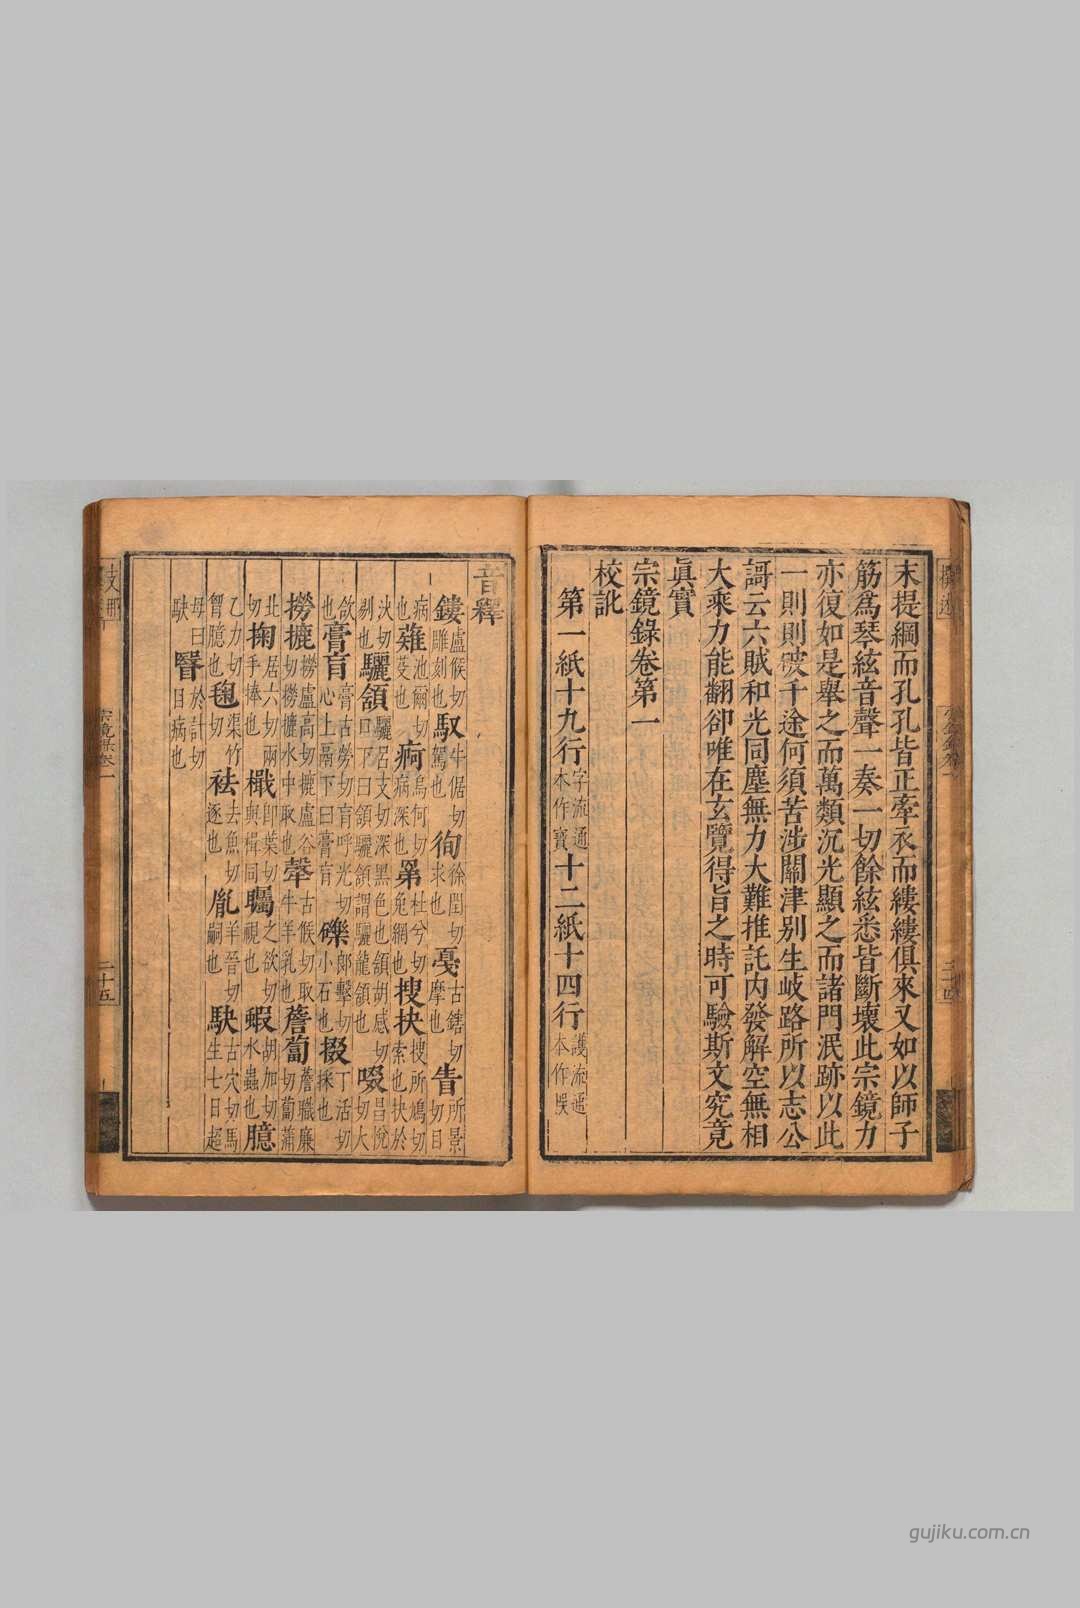 末提綱而孔孔皆正牽衣而縷縷俱來又如以師子
筋爲琴絃音聲一奏一切餘絃悉皆斷壞此宗鏡力
亦復如是舉之而萬類沉光顯之而諸門泯跡以此
一則則破千途何須苦涉關津別生岐路所以志公
謌云六賊和光同塵無力大難推託內發解空無相
大乘力能翻卻唯在玄覽得旨之時可驗斯文究竟
眞實
宗鏡錄卷第一
校訛
第一紙十九行字流通本作寶十二紙十四行護流通本作悞
音釋
鏤盧候切雕刻也馭牛倨切駕也徇徐閏切求也戞古鎋切摩也眚所景切目
病也薙池爾切芟也痾烏何切病深也罤杜兮切兔網也搜抉搜所鳩切索也抉於
決切剔也驪頷驪呂支切深黑色也頷胡感切口下曰頷驪頷謂驪龍頷也啜昌悅切大
飲也膏肓膏古勞切肓呼光切心上鬲下曰膏肓礫郎擊切小石也掇丁活切採也
撈摝撈盧高切摝盧谷切撈摝水中取也𤚲古候切取牛羊乳也薝蔔薝職廉切蔔蒲
北切掬居六切兩手捧也檝即葉切與楫同矚之欲切視也蝦胡加切水蟲也臆
乙力切胷臆也毱渠竹切祛去魚切逐也胤羊晉切嗣也駃古穴切馬生七日超
母曰駃瞖於計切目病也
宗鏡錄卷一
二十五
gujiku.com.cn